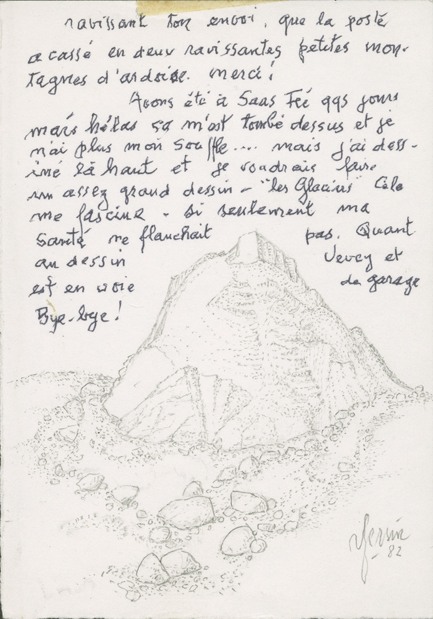 ravissant ton envoi, que la poste
a cassé en deux ravissantes petites mon-
tagnes d'ardoise. merci!
Avons été à Saas Feé qqs jours
mais hélas ça m'est tombé dessus et je
n'ai plus mon souffle.... mais j'ai dess-
iné là haut et je voudrais faire
un assez grand dessin - "les Glaciers" Cela
me fascine - si seulement ma
santé ne flanchait pas. Quant
au dessin Vevey et
est en voie de garage
Bye-bye!
82